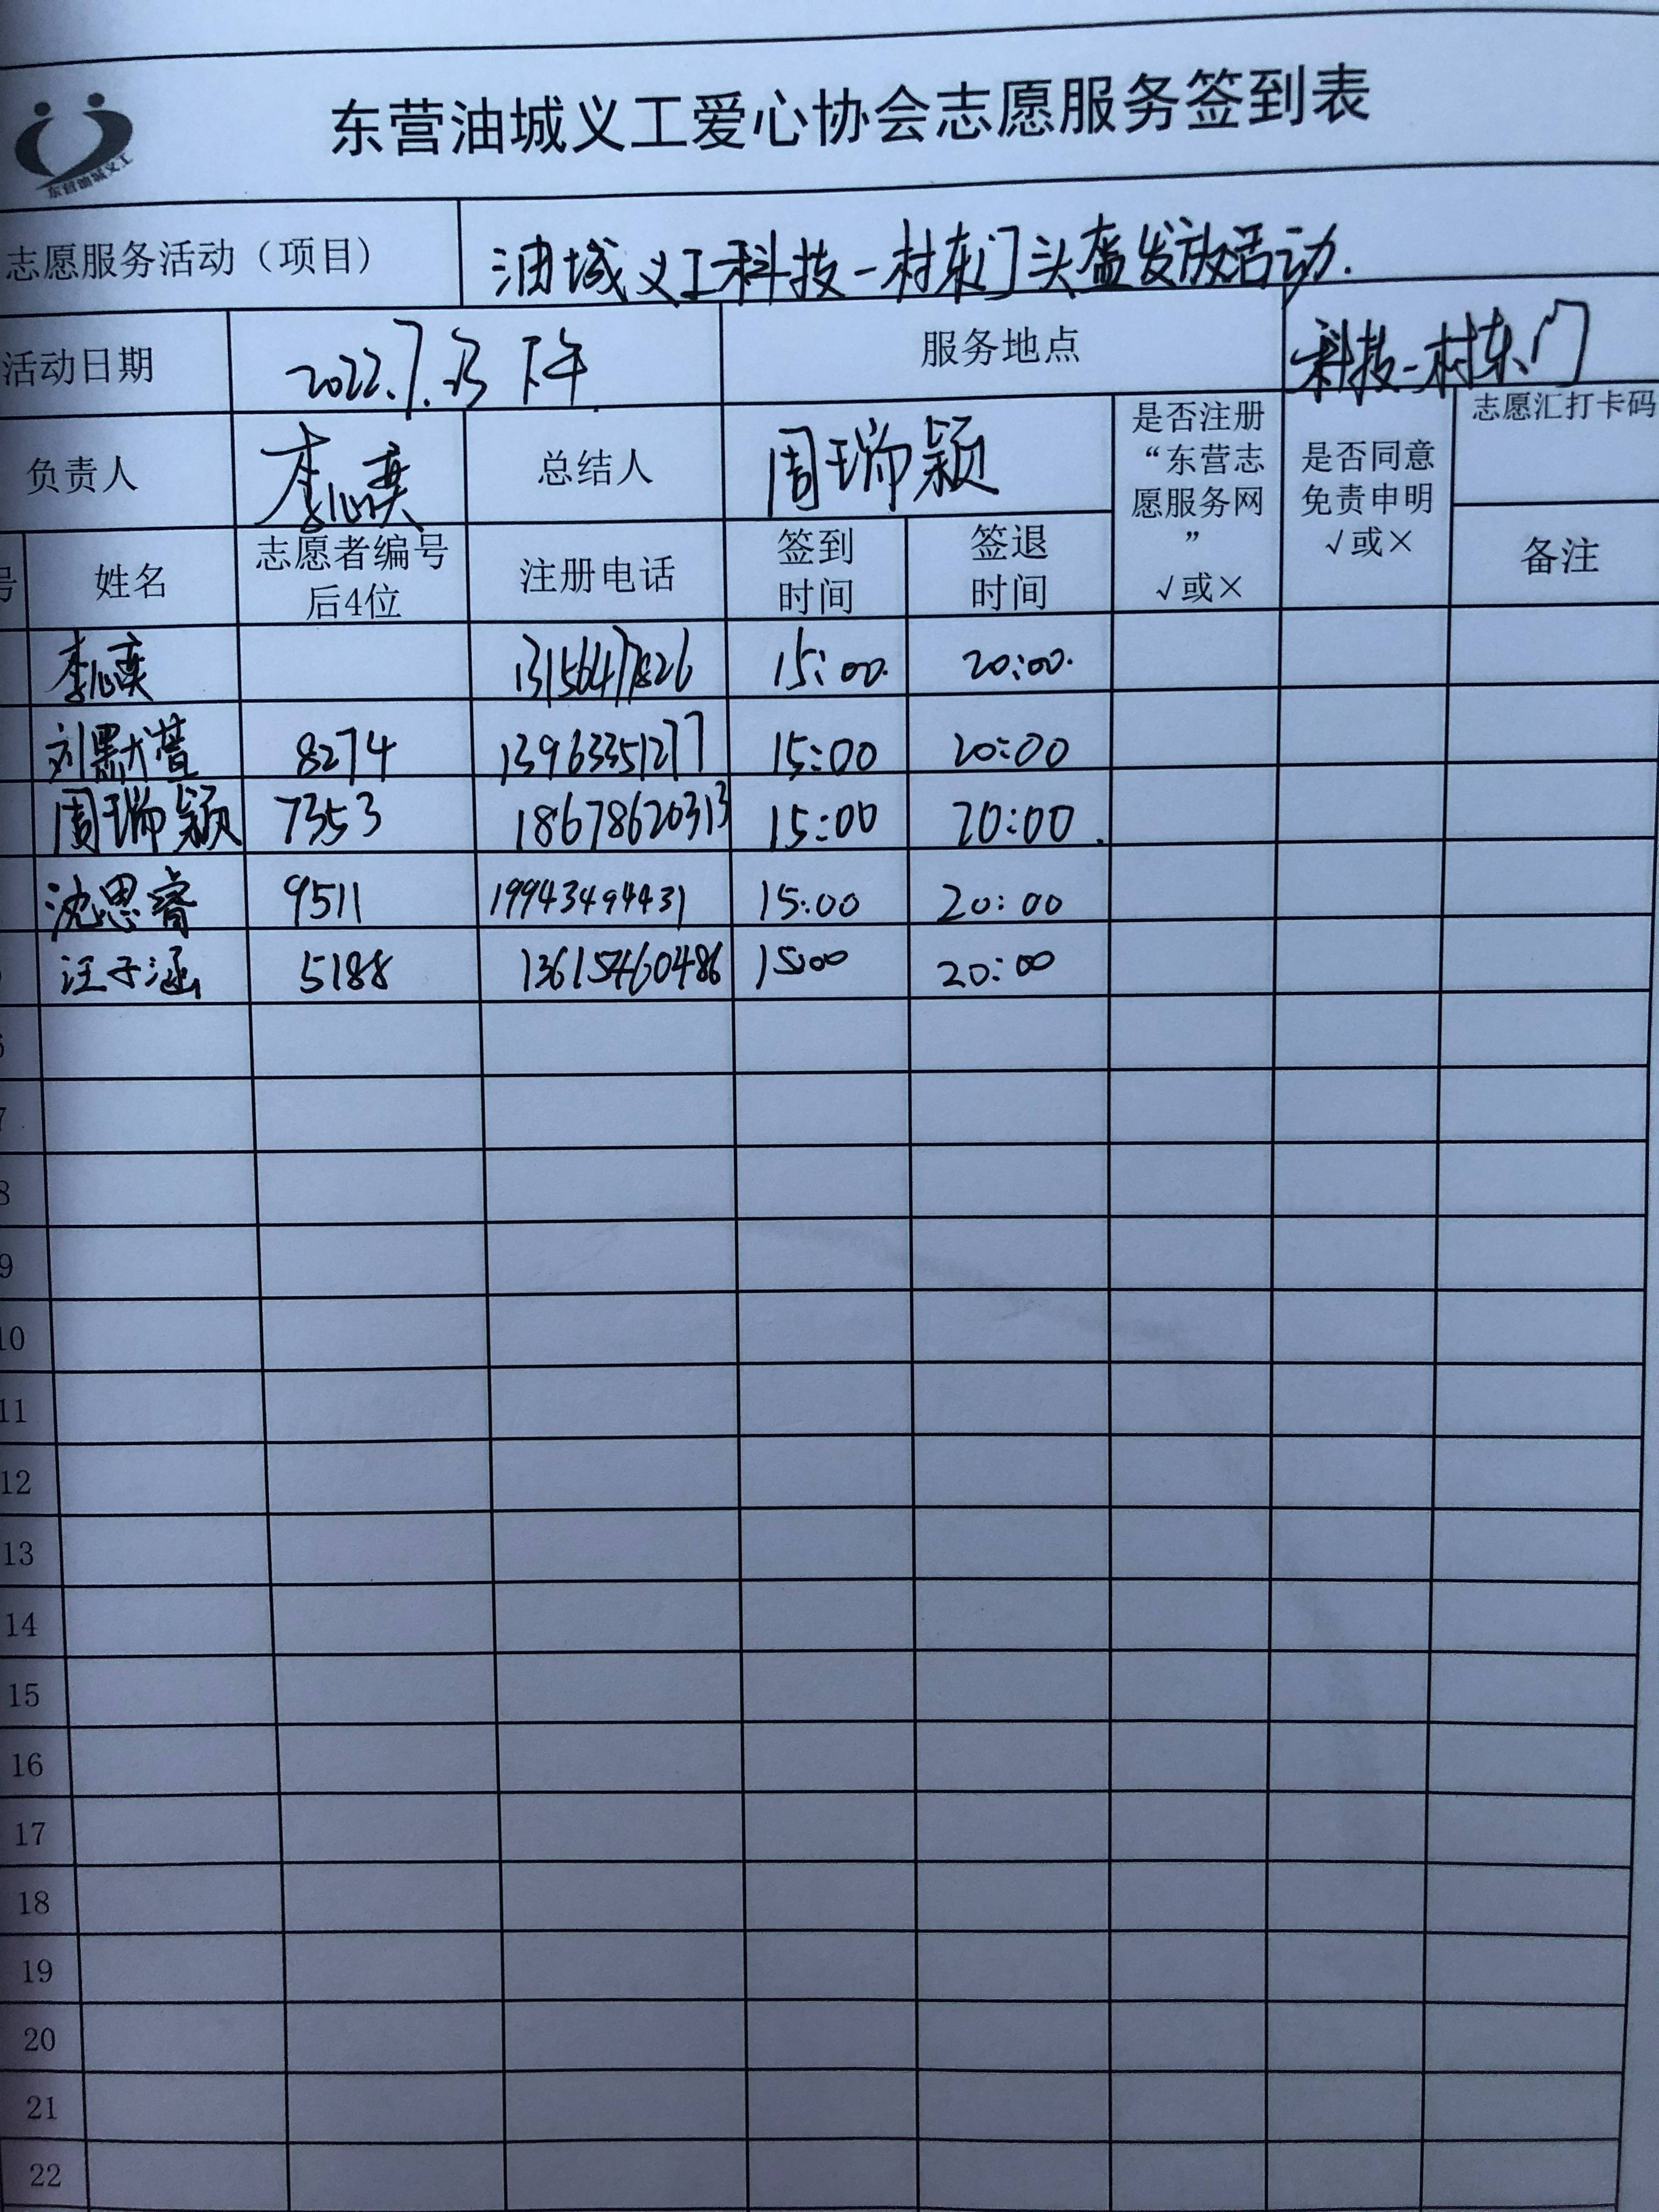 东营油城义工爱心协会志愿服务签到表
东营油城义工
志愿服务活动（项目） 油城义工科技一村东门头盔发放活动.
活动日期 2022.7.23 下午 服务地点 科技一村东门
负责人 李心奕 总结人 周瑞颖 是否注册“东营志愿服务网” √或× 是否同意免责申明 √或× 志愿汇打卡码
号 姓名 志愿者编号后4位 注册电话 签到时间 签退时间 备注
李心奕 13156417826 15:00. 20:00.
刘默萱 8274 13963351277 15:00 20:00
周瑞颖 7353 18678620313 15:00 20:00.
沈思睿 9511 19943494431 15:00 20:00
汪子涵 5188 13615460486 15:00 20:00
6
7
8
9
10
11
12
13
14
15
16
17
18
19
20
21
22